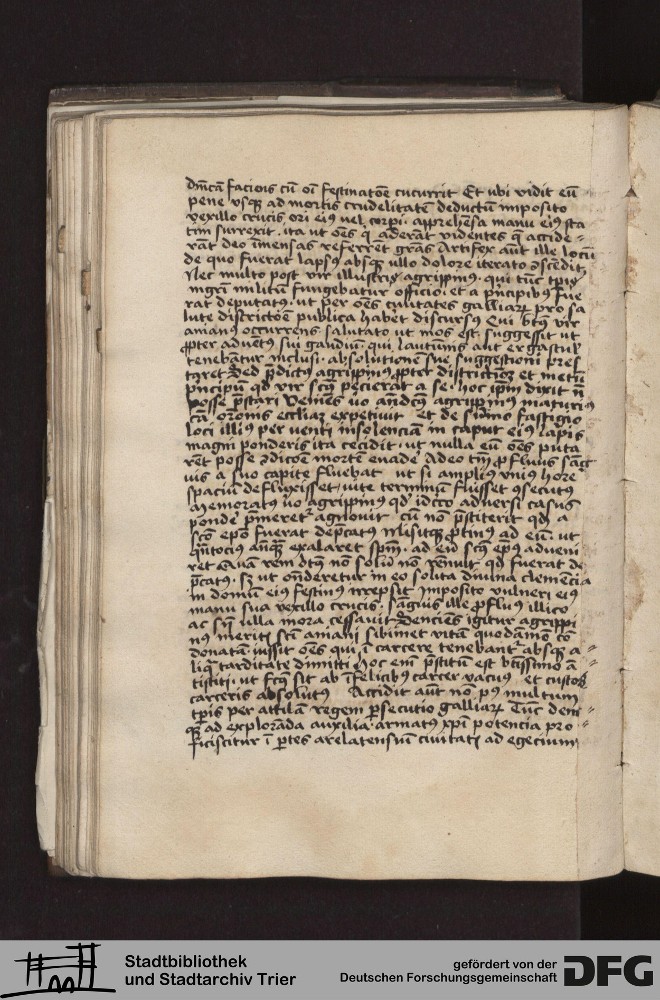 dn̄icā faciens cū oī festinatōe cucurrit Et ubi vidit eū
pene vsqꝫ ad mortis crudelitatē deductū imposito
vexillo crucis ori eiꝰ vel corpi· apprehēsa manu eiꝰ sta
tim surrexit· ita ut oēs q̄ aderāt videntes q̄ accide-
rāt deo īmensas referrēt grās Artifex aūt ille locū
de quo fuerat lapsꝰ absqꝫ ullo dolore iterato ascēdit
Nec multo post vir illustris agrippinꝰ· qui tūc tp̄is
mgr̄i militū fungebatur officio· et a p̄ncipibꝰ fue
rat deputatꝰ· ut per oēs ciuitates galliaꝝ pro sa
lute districtōē publica habēt discursū Qui btūs vir
anianꝰ occurrens salutato ut mos est· suggessit ut
ꝓpter aduētꝰ sui gaudiū· qui
tenebātur inclusi· absolutionē sue suggestioni pres
taret Sed p̄dictꝰ agrippinꝰ ꝓpter districtioē et metū
p̄ncipū qd vir scūs pecierat a se· hoc ip̄m dixit nō
posse p̄stari Veniēs ūo agrippinꝰ maturiꝰ
cā orōnis eccliaꝫ expetiuit et de sūmo fastigio
loci illiꝰ per venti insolenciā in caput eiꝰ lapis
magni ponderis ita cecidit· ut nulla eū oēs puta
rēt posse ꝯdicōe mortē euade Adeo tm̄ ꝓfluuꝰ sāg
uis a suo capite fluebat ut si ampliꝰ vniꝰ hore
spaciū defluxisset· vite terminū fuisset ꝯsecutꝰ
Memoratꝰ ūo agrippinꝰ qd idcco aduersi casus
pondē p̄meret᷑ agnouit cū nō p̄stiterit qd a
scō ep̄o fuerat dep̄catꝰ Misitqꝫ ꝓtinꝰ ad eū· ut
exalaret sp̄m· ad eū scūs ep̄us adueni
ret Quam rem btūs nō solū nō rēnuit qd fuerat de
p̄catꝰ· sꝫ ut ōnderetur in eo solita diuina clemēcia
in domū eiꝰ festinꝰ irrepsit Imposito vulneri eiꝰ
manu sua vexillo crucis· sāguis ille ꝓfluꝰ illico
ac si ulla mora cessauit Senciens igitur agrippi
nꝰ meriti scī aniani sibimet vitā quodāmō cō
donatā iussit oēs qui ī carcere tenebant᷑ absqꝫ a-
liq̄ tarditate dimitti Hoc em̄ p̄stitū est btīssimo ā-
tistiti· ut fcm̄ sit ab īfelicibꝰ carcer vacuꝰ et custos
carceris absolutꝰ Accidit aūt nō pꝰ multum
tp̄is per attilā regem p̄secutio galliaꝝ Tūc deni-
qꝫ ad exploranda auxilia· armatꝰ xp̄i potencia pro-
ficiscitur ī ptes arelatensiū ciuitati ad egecium
Stadtbibliothek
und Stadtarchiv Trier
gefördert von der
Deutschen Forschungsgemeinschaft
DFG